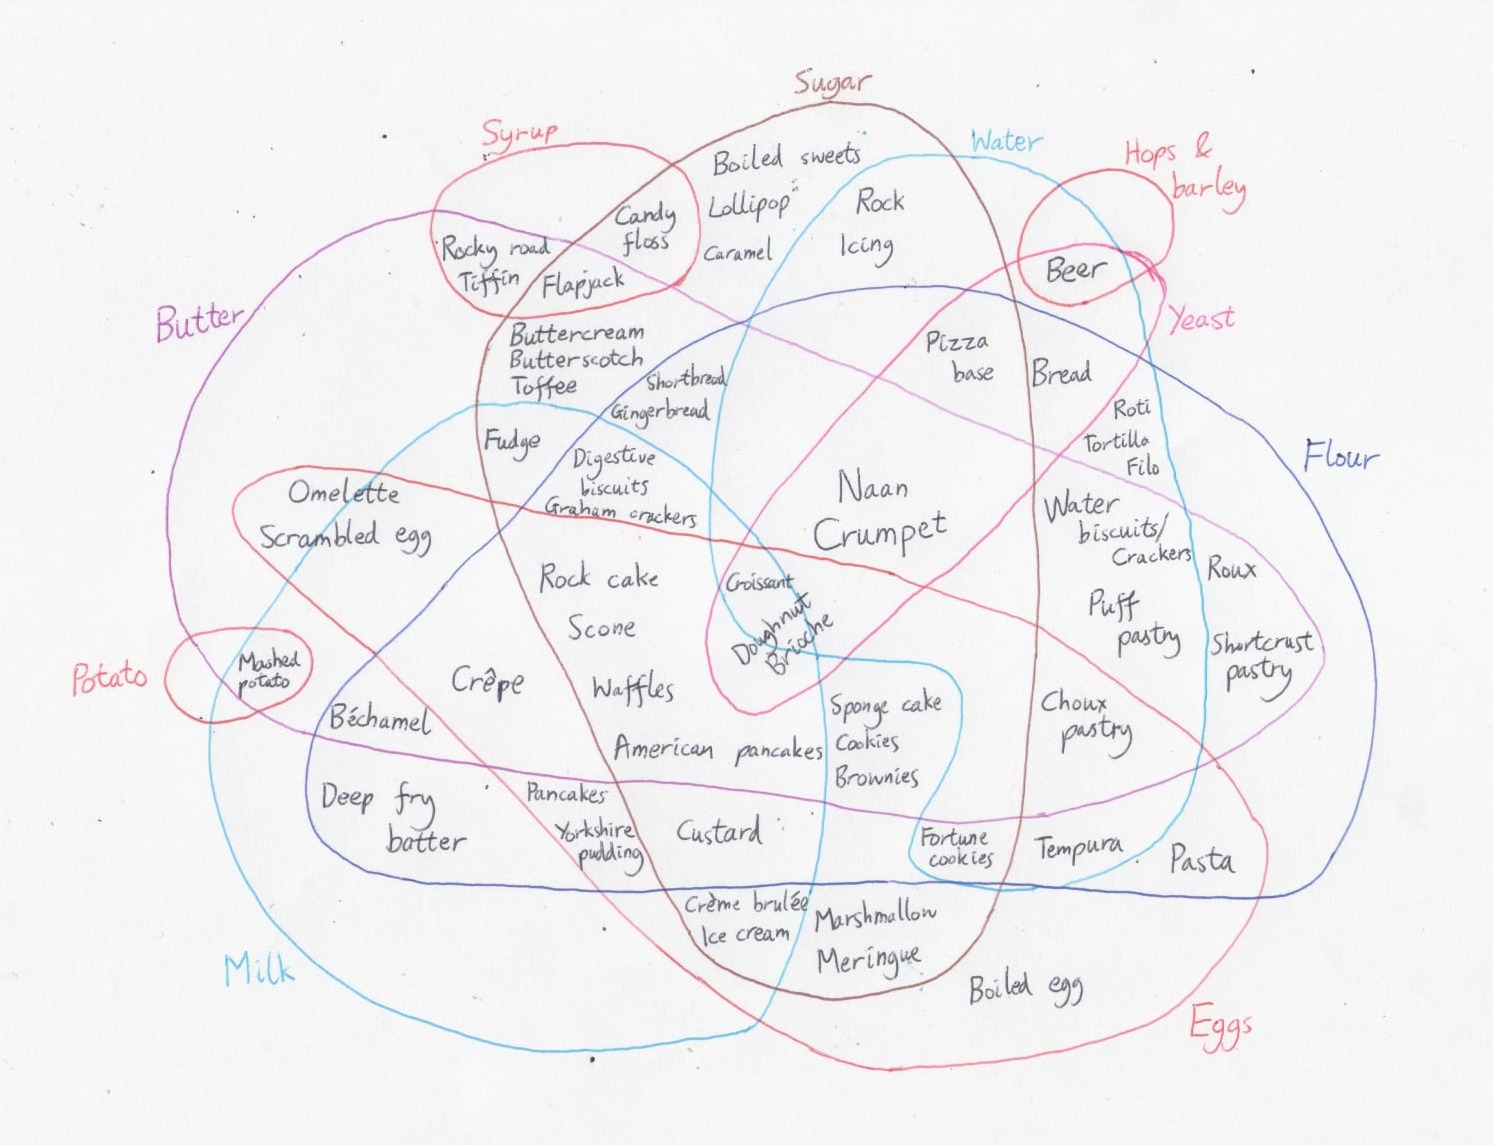 Sugar
Syrup
Water
Hops &
barley
Boiled sweets
Lollipop
Caramel
Rock
Icing
Candy
floss
Rocky road
Tiffin
Flapjack
Beer
Butter
Yeast
Buttercream
Butterscotch
Toffee
Shortbread
Gingerbread
Pizza
base
Bread
Roti
Tortilla
Filo
Flour
Fudge
Digestive
biscuits
Graham crackers
Omelette
Scrambled egg
Naan
Crumpet
Water
biscuits/
Crackers
Roux
Rock cake
Scone
Croissant
Doughnut
Brioche
Puff
pastry
Shortcrust
pastry
Potato
Mashed
potato
Crêpe
Waffles
Béchamel
American pancakes
Sponge cake
Cookies
Brownies
Choux
pastry
Deep fry
batter
Pancakes
Yorkshire
pudding
Custard
Fortune
cookies
Tempura
Pasta
Crème brulée
Ice cream
Marshmallow
Meringue
Boiled egg
Milk
Eggs